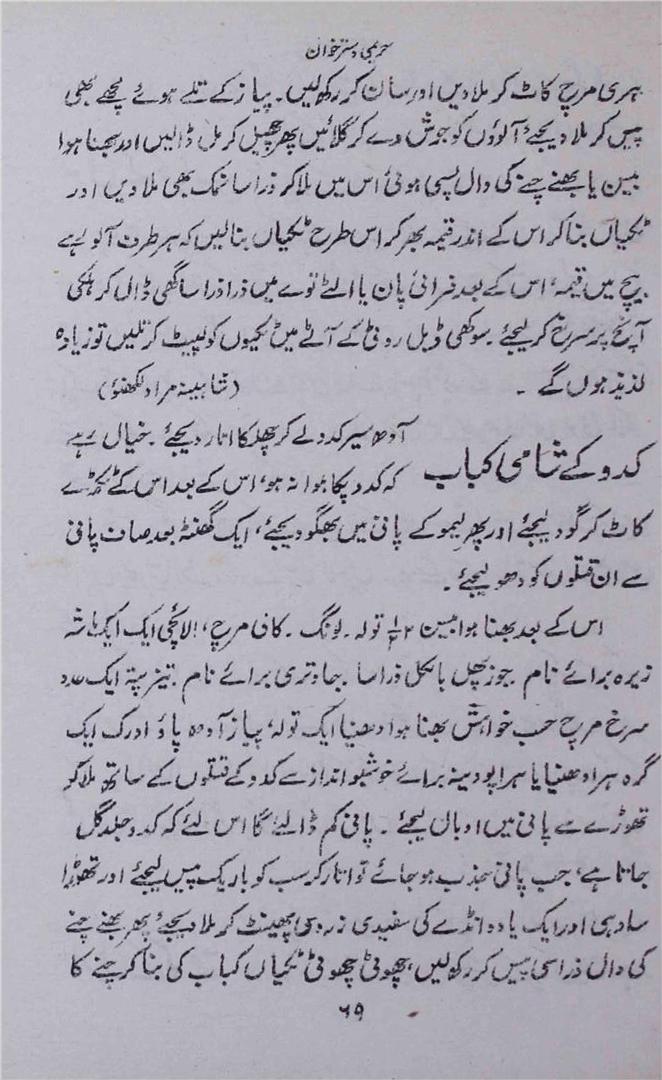 حریمی دسترخوان
ہری مرچ کاٹ کر ملا دیں اور سان کر رکھ لیں۔ پیاز کے تلے ہوئے لچھے بھی
پیس کر ملا دیجئے آلوؤں کو جوش دے کر گلائیں پھر چھیل کر مل ڈالیں اور بھنا ہوا
بیسن یا بھنے چنے کی دال پسی ہوئی اس میں ملا کر ذرا سا نمک بھی ملا دیں اور
ٹکیاں بنا کر اس کے اندر قیمہ بھر کر اس طرح ٹکیاں بنا لیں کہ ہر طرف آلو ہے
بیچ میں قیمہ، اس کے بعد فرائی پان یا الٹے توے میں ذرا ذرا سا گھی ڈال کر ہلکی
آنچ پر سرخ کر لیجئے۔ سوکھی ڈبل روٹی کے آٹے میں ٹکیوں کو لپیٹ کر تلیں تو زیادہ
لذیذ ہوں گے ۔ (شاہینہ مراد لکھنؤ)
کدو کے شامی کباب
آدھ سیر کدو لے کر چھلکا اتار دیجئے ۔ خیال رہے
کہ کدو پکا ہوا نہ ہو، اس کے بعد اس کے ٹکڑے
کاٹ کر گود لیجئے اور پھر لیمو کے پانی میں بھگو دیجئے، ایک گھنٹہ بعد صاف پانی
سے ان قتلوں کو دھو لیجئے ۔
اس کے بعد بھنا ہوا بیسن ½۲ تولہ ۔ لونگ ۔ کالی مرچ، الائچی ایک ایک ماشہ
زیرہ برائے نام ۔ جوزپھل بالکل ذرا سا ۔ جاوتری برائے نام ۔ تیزپتہ ایک عدد
سرخ مرچ حسب خواہش بھنا ہوا دھنیا ایک تولہ، پیاز آدھ پاؤ ادرک ایک
گرہ ہرا دھنیا یا ہرا پودینہ برائے خوشبو انداز سے کدو کے قتلوں کے ساتھ ملا کر
تھوڑے سے پانی میں اوبال لیجئے ۔ پانی کم ڈالئے گا اس لئے کہ کدو جلد گل
جاتا ہے، جب پانی جذب ہو جائے تو اتار کر سب کو باریک پیس لیجئے اور تھوڑا
سا دہی اور ایک یا دو انڈے کی سفیدی زردی پھینٹ کر ملا دیجئے پھر بھنے چنے
کی دال ذرا سی پیس کر رکھ لیں، چھوٹی چھوٹی ٹکیاں کباب کی بنا کر چنے کا
۶۹